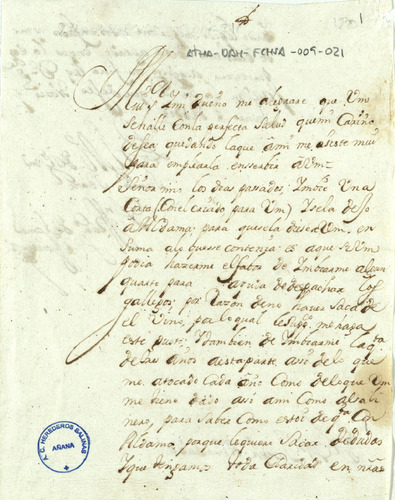 1
ATHA-DAH-FCHSA-009-021
Mui S. mi dueño me alegrare que Vm
se halle con la perfecta salud que mi cariño
desea, quedando la que a mi me asiste mui
para emplearla en serbir a Vm
Señor mio los dias pasados, Imbie Vna
Carta con el criado para Vm
Aldama para que se la diese a Vm. en
suma a lo que se contenia es a que si Vm
podia hazerme el fabor de Imbiarme algun
quarto para de despachar los
gallegos, por razon de no haver saca de
el Vino, por lo qual le suplico me haga
este gusto. I tambien de Imbiarme la q.ta
de las años a esta parte, asi de lo que
me a tocado cada año como de lo que Vm
me tiene dado asi a mi como al rabi
nero, para saber como estoi de q.ta con
Aldama, porque le quiero sacar de dudas
I que tengamos toda claridad en nras
F. C. HEREDEROS SALINAS
AÑANA